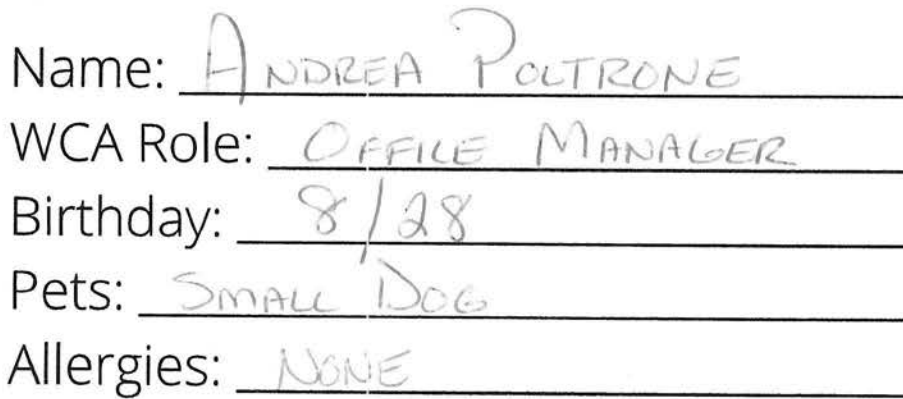 Name: ANDREA POLTRONE
WCA Role: OFFICE MANAGER
Birthday: 8/28
Pets: SMALL DOG
Allergies: NONE